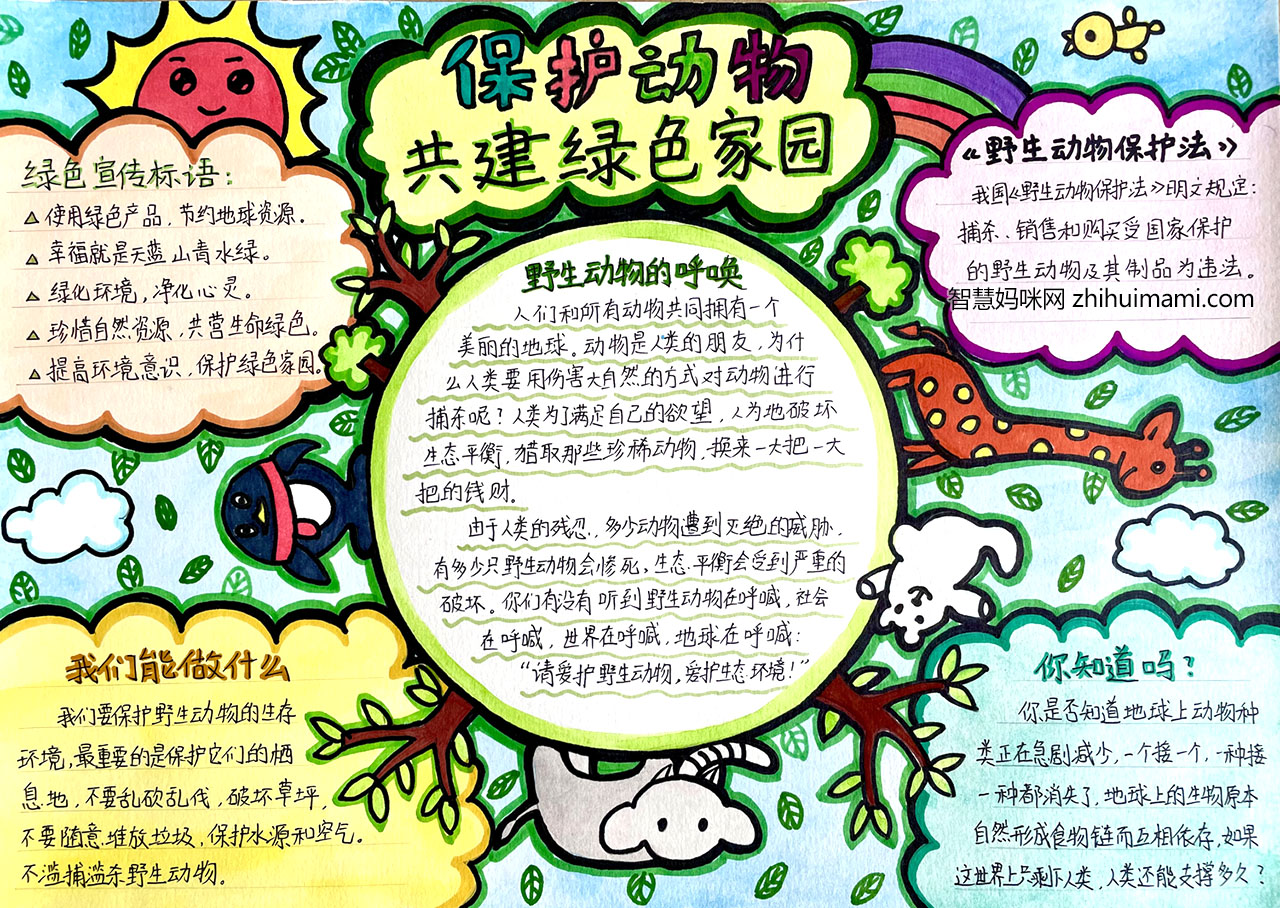 保护动物
共建绿色家园
绿色宣传标语：
使用绿色产品，节约地球资源。
幸福就是天蓝山青水绿。
绿化环境，净化心灵。
珍惜自然资源，共营生命绿色。
提高环境意识，保护绿色家园。
《野生动物保护法》
我国《野生动物保护法》明文规定：
捕杀、销售和购买受国家保护
的野生动物及其制品为违法。
智慧妈咪网 zhihuimami.com
野生动物的呼唤
人们和所有动物共同拥有一个
美丽的地球。动物是人类的朋友，为什
么人类要用伤害大自然的方式对动物进行
捕杀呢？人类为了满足自己的欲望，人为地破坏
生态平衡，猎取那些珍稀动物，换来一大把一大
把的钱财。
由于人类的残忍，多少动物遭到灭绝的威胁，
有多少只野生动物会惨死，生态平衡会受到严重的
破坏。你们有没有听到野生动物在呼喊，社会
在呼喊，世界在呼喊，地球在呼喊：
“请爱护野生动物，爱护生态环境！”
我们能做什么
我们要保护野生动物的生存
环境，最重要的是保护它们的栖
息地，不要乱砍乱伐，破坏草坪，
不要随意堆放垃圾，保护水源和空气。
不滥捕滥杀野生动物。
你知道吗？
你是否知道地球上动物种
类正在急剧减少，一个接一个，一种接
一种都消失了，地球上的生物原本
自然形成食物链而互相依存，如果
这世界上只剩下人类，人类还能支撑多久？